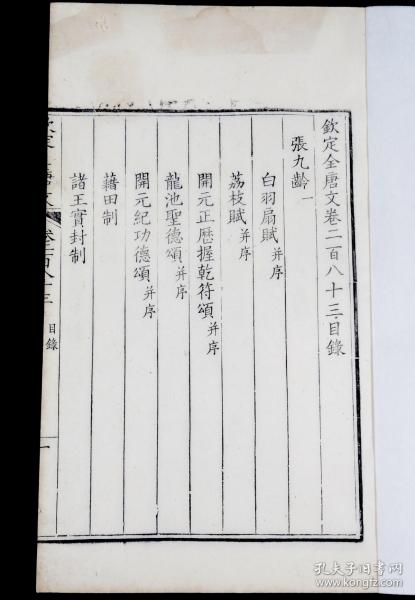 欽定全唐文卷二百八十三目錄
張九齡一
白羽扇賦并序
荔枝賦并序
開元正歷握乾符頌并序
龍池聖德頌并序
開元紀功德頌并序
藉田制
諸王實封制
目錄
一
孔夫子旧书网
www.kongfz.com